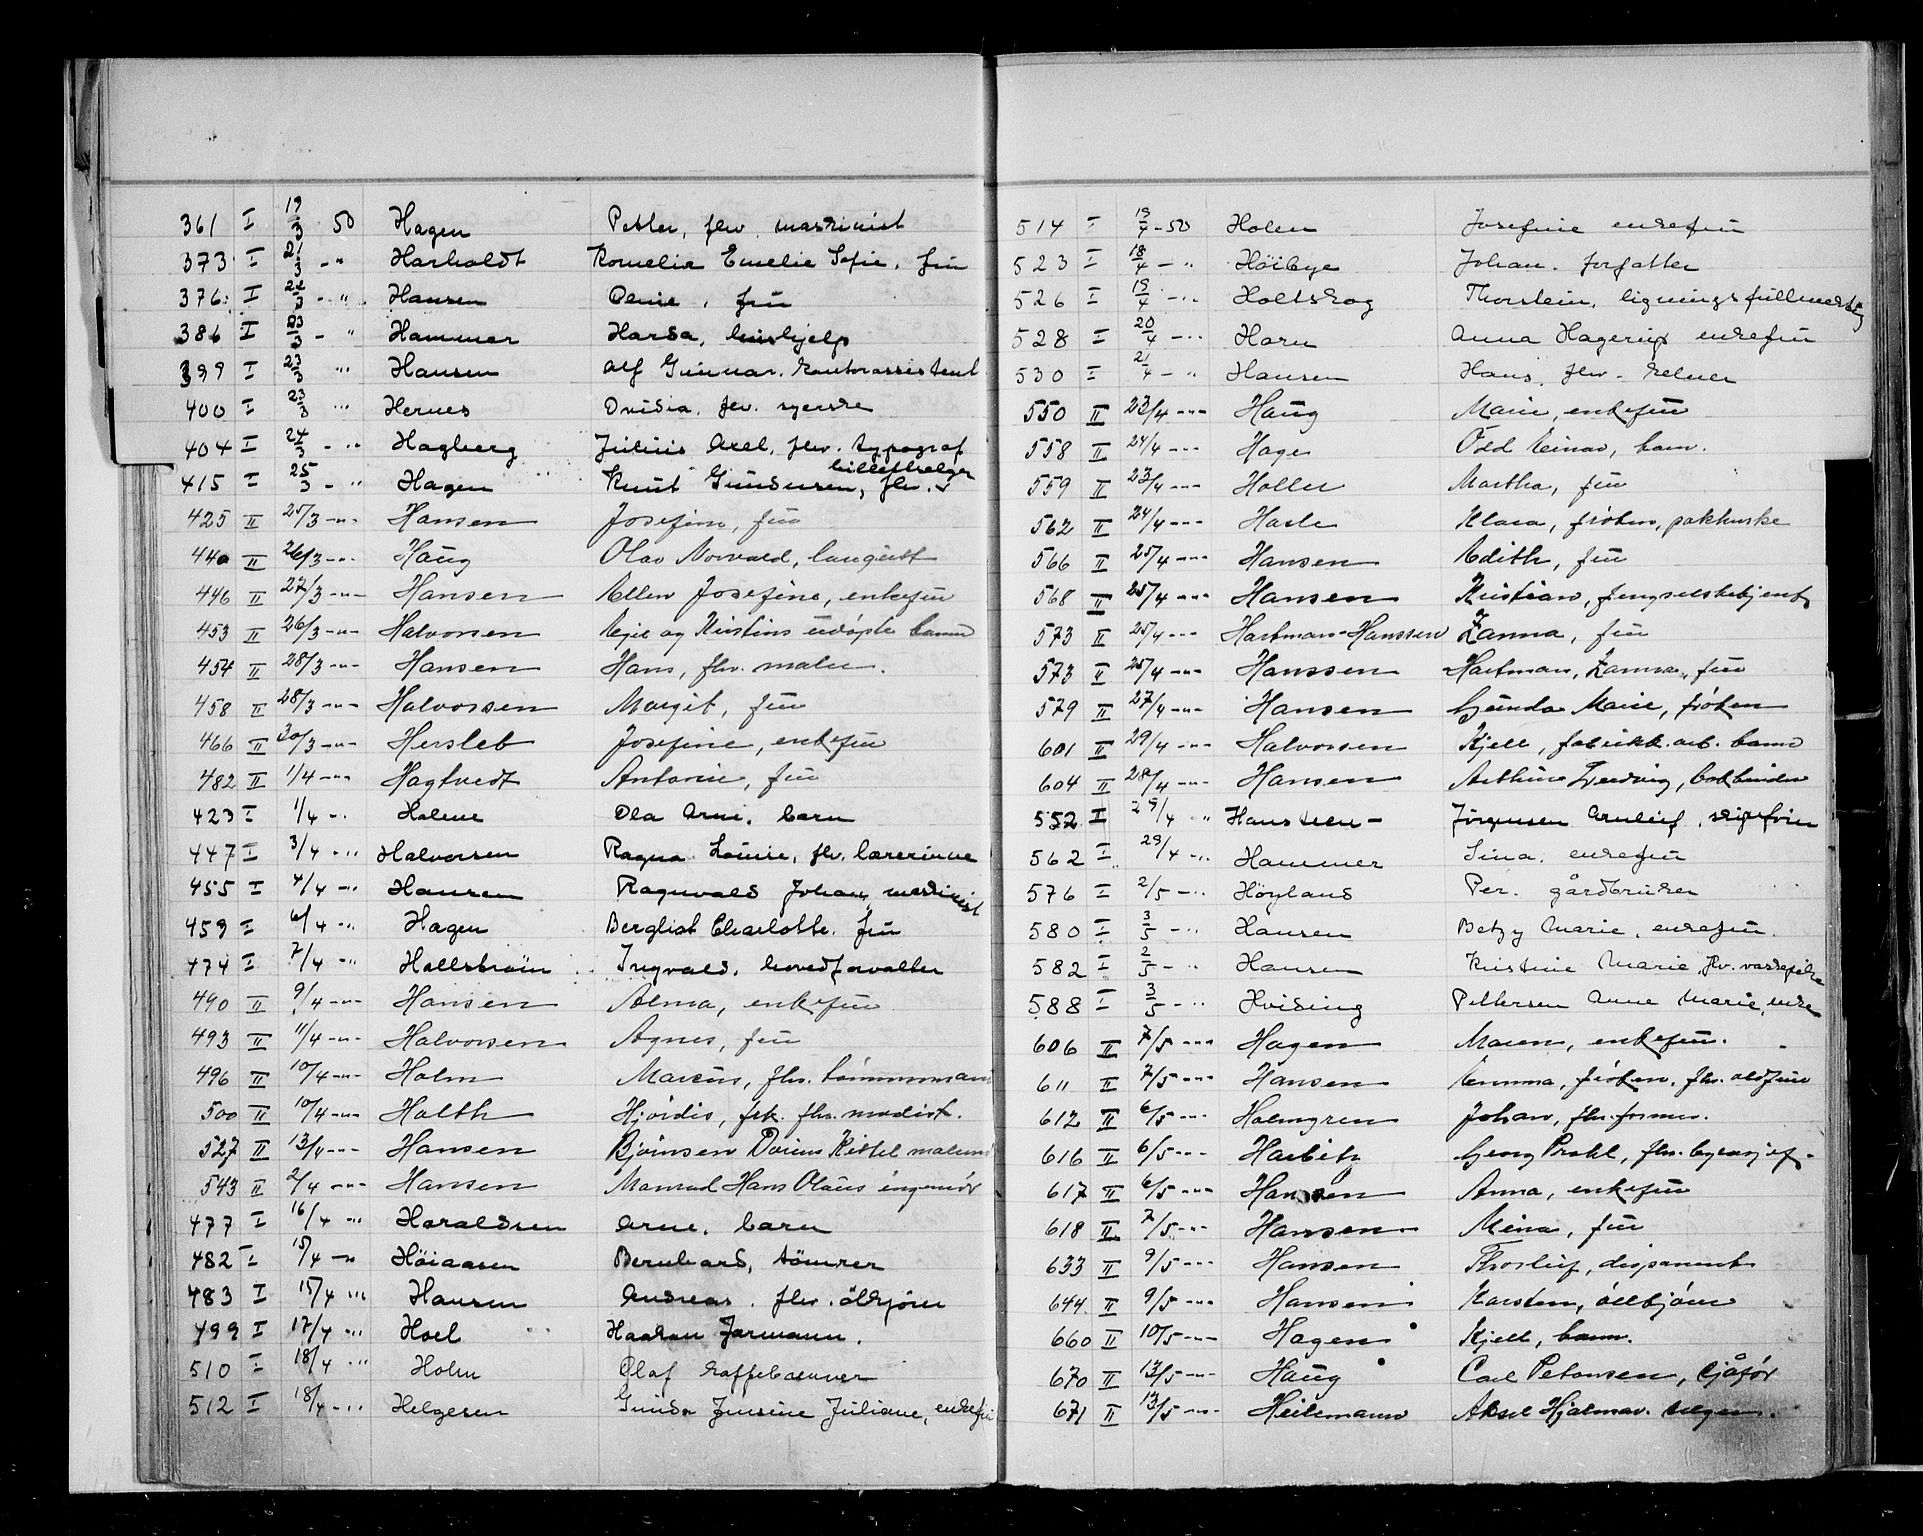 361 I 19/3 50 Hagen Petter, fhv. maskinist
373 I 21/3 - " Harholdt Kornelia Emelie Sofie, fru
376 I 22/3 - " Hansen fru
386 I 23/3 - " Hammer Harda, hushjelp
399 I 23/3 " Hansen Alf Gunnar, kontorassistent
400 I 23/3 " Hernes Ovidia, fhv. syerske
404 I 24/3 - " Hagberg Julius Axel, fhv. typograf
415 I 25/3 - " Hagen Knut Gundersen, fhv. billettselger
425 II 25/3 -"- Hansen Josefine, fru
440 II 26/3 -"- Haug Olav Norvald,
446 II 27/3 -"- Hansen Ellen Josefine, enkefru
453 II 26/3 -"- Halvorsen Egil og Kirstins udøpte barn
454 II 28/3 -"- Hansen Hans, fhv. maler.
458 II 28/3 -"- Halvorsen Margit, fru
466 II 30/3 -"- Hersleb Josefine, enkefru
482 II 1/4 -"- Hagtvedt Antonie, fru
423 I 1/4 -" Holene Ola Arne, barn
447 I 3/4 -" Halvorsen Ragna Louise, fhv. lærerinne
455 I 4/4 -" Hansen Ragnvald Johan, maskinist
459 I 6/4 -" Hagen Bergliot Charlotte, fru
474 I 7/4 -" Hallstrøm Ingvald, hovedforvalter
490 II 9/4 -"- Hansen Alma, enkefru
493 II 11/4 -"- Halvorsen Agnes, fru
496 II 10/4 -"- Holm Marcus, fhv. tømmermann
500 II 10/4 -"- Holth Hjördis, frk. fhv. modist.
527 II 13/4 -"- Hansen Bjørnsen Dorius Kittel
543 II 2/4 -"- Hansen Manrad Hans Olaus ingeniør
477 I 16/4 -" Haraldsen Arne, barn
482 I 15/4 -" Höiaasen Bernhard, tömrer
483 I 15/4 -" Hansen Andreas, fhv. ölkjörer
499 I 17/4 -" Hoel Haakon Jarmann.
510 I 18/4 -" Holm Olaf kaffebrenner
512 I 18/4 -" Helgesen Gunda Jensine Juliane, enkefru
514 I 15/4 - 50 Holen Josefine enkefru
523 I 18/4 - " Höibye Johan. forfatter
526 I 19/4 - " Holtskog Thorstein, ligningsfullmektig
528 I 20/4 - " Horn Anna Hagerup enkefru
530 I 21/4 - " Hansen Hans, fhv. kelner
550 II 23/4 -"- Haug Marie, enkefru
558 II 24/4 -"- Hage Odd Einar, barn.
559 II 23/4 -"- Holler Martha, fru
562 II 24/4 -"- Hasle Klara, frøken, pakkerske
566 II 25/4 -"- Hansen Edith, fru
568 II 25/4 -"- Hansen Kristian, fengselsbetjent
573 II 25/4 -"- Hartman-Hanssen Zanna, fru
573 II 25/4 -"- Hanssen Hartman, Zanna, fru
579 II 27/4 -"- Hansen Gunda Marie, frøken
601 II 29/4 -"- Halvorsen Kjell, fabrikk.arb. barn
604 II 28/4 -"- Hansen Arthur Ludvig, bokbinder
552 I 25/4 " Hansteen - Jörgensen Arnleif,
562 I 29/4 -" Hammer Sina, enkefru
576 I 2/5 -" Höyland Per. gårdbruker
580 I 3/5 -" Hansen Betzy Marie, enkefru.
582 I 2/5 -" Hansen Kristine Marie, fhv.
588 I 3/5 -" Hviding Pettersen Anne Marie, enke
606 II 7/5 -"- Hagen Maren, enkefru.
611 II 7/5 -"- Hansen Emma, frøken. fhv. oldfrue
612 II 6/5 -"- Holmgren Johan, fhv. former.
616 II 6/5 -"- Harbitz Georg Prahl, fhv. byesjef.
617 II 6/5 -"- Hansen Anna, enkefru
618 II 7/5 -"- Hansen Mina, fru
633 II 9/5 -"- Hansen Thorleif, disponent
644 II 9/5 -"- Hansen Karsten, ølkjører
660 II 10/5 -"- Hagen Kjell, barn.
670 II 13/5 -"- Haug Carl Petersen, sjåfør
671 II 13/5 -"- Heilemann Aksel Hjalmar. selger.